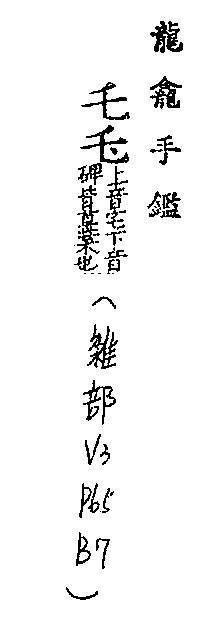 龍龕手鑑
乇
上音宅下音
碑皆草葉也
(雜部V3 P65 B7)